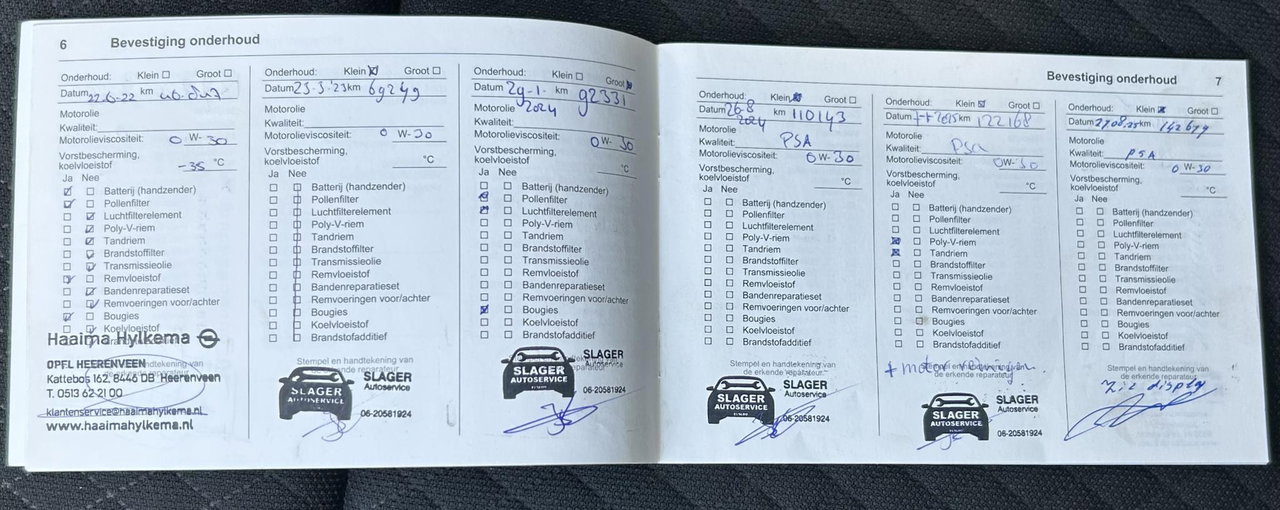 6 Bevestiging onderhoud
Onderhoud: Klein Groot
Datum 22-6-22 km
Motorolie
Kwaliteit:
Motorolieviscositeit: 0 W-30
Vorstbescherming,
koelvloeistof -35 °C
Ja Nee
Batterij (handzender)
Pollenfilter
Luchtfilterelement
Poly-V-riem
Tandriem
Brandstoffilter
Transmissieolie
Remvloeistof
Bandenreparatieset
Remvoeringen voor/achter
Bougies
Koelvloeistof
Haaima Hylkema
OPEL HEERENVEEN
Kattebos 162, 8446 DB Heerenveen
T. 0513 62 21 00
klantenservice@haaimahylkema.nl
www.haaimahylkema.nl
Onderhoud: Klein Groot
Datum 23-5-'23 km 69249
Motorolie
Kwaliteit:
Motorolieviscositeit: 0 W-30
Vorstbescherming,
koelvloeistof °C
Ja Nee
Batterij (handzender)
Pollenfilter
Luchtfilterelement
Poly-V-riem
Tandriem
Brandstoffilter
Transmissieolie
Remvloeistof
Bandenreparatieset
Remvoeringen voor/achter
Bougies
Koelvloeistof
Brandstofadditief
Stempel en handtekening van
de erkende reparateur
SLAGER
AUTOSERVICE
SLAGER
Autoservice
06-20581924
Onderhoud: Klein Groot
Datum 29-1- km 92331
Motorolie 2024
Kwaliteit:
Motorolieviscositeit: 0 W-30
Vorstbescherming,
koelvloeistof °C
Ja Nee
Batterij (handzender)
Pollenfilter
Luchtfilterelement
Poly-V-riem
Tandriem
Brandstoffilter
Transmissieolie
Remvloeistof
Bandenreparatieset
Remvoeringen voor/achter
Bougies
Koelvloeistof
Brandstofadditief
SLAGER
AUTOSERVICE
SLAGER
Autoservice
06-20581924
Bevestiging onderhoud 7
Onderhoud: Klein Groot
Datum 26-8 km 110143
2024
Motorolie
Kwaliteit: PSA
Motorolieviscositeit: 0 W-30
Vorstbescherming,
koelvloeistof °C
Ja Nee
Batterij (handzender)
Pollenfilter
Luchtfilterelement
Poly-V-riem
Tandriem
Brandstoffilter
Transmissieolie
Remvloeistof
Bandenreparatieset
Remvoeringen voor/achter
Bougies
Koelvloeistof
Brandstofadditief
Stempel en handtekening van
de erkende reparateur
SLAGER
AUTOSERVICE
SLAGER
Autoservice
06-20581924
Onderhoud: Klein Groot
Datum 2025 km 122168
Motorolie
Kwaliteit: PSA
Motorolieviscositeit: 0 W-30
Vorstbescherming,
koelvloeistof °C
Ja Nee
Batterij (handzender)
Pollenfilter
Luchtfilterelement
Poly-V-riem
Tandriem
Brandstoffilter
Transmissieolie
Remvloeistof
Bandenreparatieset
Remvoeringen voor/achter
Bougies
Koelvloeistof
Brandstofadditief
Stempel en handtekening van
de erkende reparateur
+ motor
SLAGER
AUTOSERVICE
SLAGER
Autoservice
06-20581924
Onderhoud: Klein Groot
Datum 27.08.25 km 142679
Motorolie
Kwaliteit: PSA
Motorolieviscositeit: 0 W-30
Vorstbescherming,
koelvloeistof °C
Ja Nee
Batterij (handzender)
Pollenfilter
Luchtfilterelement
Poly-V-riem
Tandriem
Brandstoffilter
Transmissieolie
Remvloeistof
Bandenreparatieset
Remvoeringen voor/achter
Bougies
Koelvloeistof
Brandstofadditief
Stempel en handtekening van
de erkende reparateur
Zie display